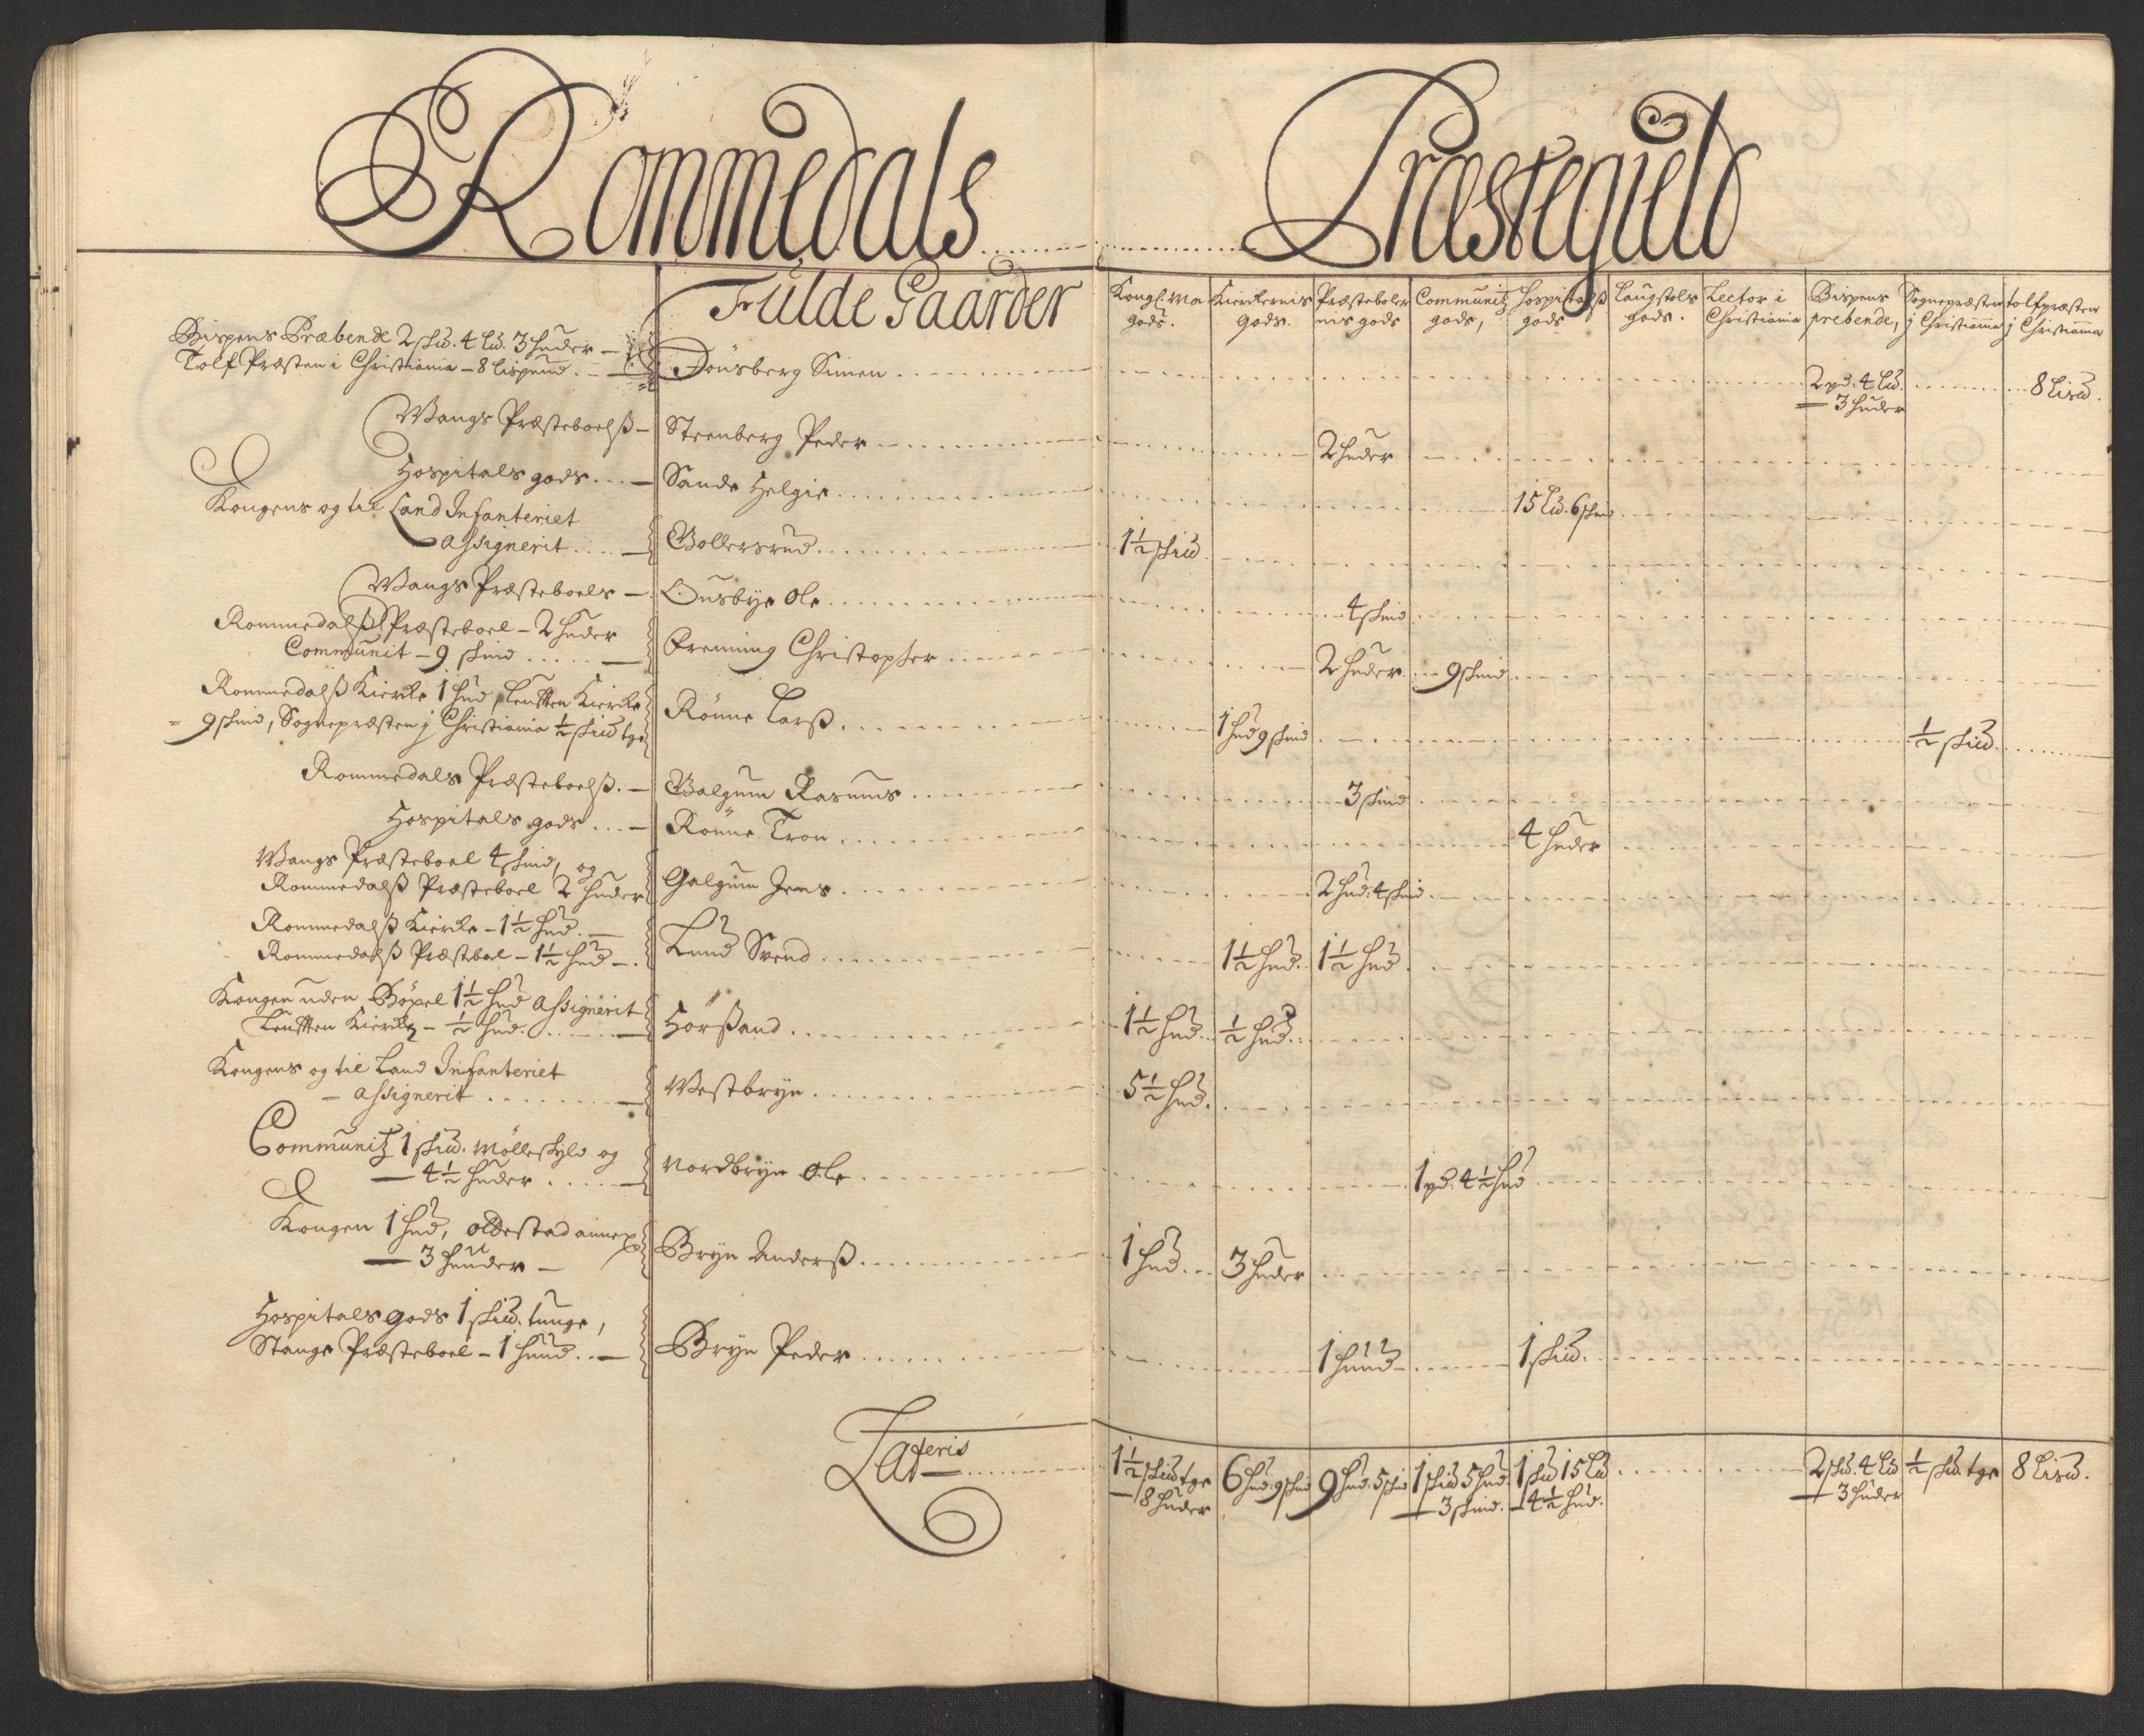 Rommedals Præstegield
Fulde Gaarder
Kongl. Ma gods.
Kierkernis gods.
Præstebolernis gods
Communitz gods,
Hospitalß gods
Laugstols gods.
Lector i Christiania
Bispens prebende,
Sognepræsten j Christiania
tolfpræsten j Christiania
Bispens Præbende 2 skud. 4 Lu. 3 huder
Tolf Præsten i Christiania - 8 Lispund
Dønsberg Simen
2 pd. 4 Lu. 3 huder
8 Lisu.
Wangs Præsteboelß - Steenberg Peder
2 huder
Hospitals gods - Sande Helgie
15 Lu. 6 skind
Kongens og til Land Infanteriet
assignerit
Gollersrud
1½ skud
Wangs Præsteboels - Ousbye Ole
4 skind
Rommedalß Præsteboel - 2 huder
Communit - 9 skind
Freming Christopher
2 huder 9 skind
Rommedalß Kierke 1 hud, Leutten Kierke
9 skind, Sognepræsten j Christiania ½ skud tge
Rønne Larß
1 hud 9 skind
½ skud
Rommedals Præsteboelß. - Galgum Rasmus
3 skind
Hospitals gods - Rønne Tron
4 huder
Wangs Præsteboel 4 skind, og
Rommedalß Præsteboel 2 huder
Galgum Jens
2 hud. 4 skind
Rommedalß Kierke - 1½ hud.
Rommedalß Præstbol - 1½ hud
Lund Svend
1½ hud. 1½ hud.
Kongen uden Bøxel 1½ hud assignerit
Leutten Kierke - ½ hud.
Horßand
1½ hud. ½ hud.
Kongens og til Land Infanteriet
- assignerit
Westbryn
5½ hud.
Communitz 1 skud. Mølleskyld og
- 4½ huder
Nordbryn Ole
1 pd. 4½ hud
Kongen 1 hud, Ottestad annex
- 3 huuder -
Bryn Anderß
1 hud 3 huder
Hospitals gods 1 skud. tunge,
Stange Præsteboel - 1 huud.
Bryn Peder
1 huud 1 skud.
Lateris
1½ skud tge - 8 huder
6 hud. 9 skind
9 hud. 5 skind
1 skud 5 hud. - 3 skind.
1 skud 15 Lu - 4½ hud.
2 skud. 4 Lu - 3 huder
½ skud. tge
8 Lisu.